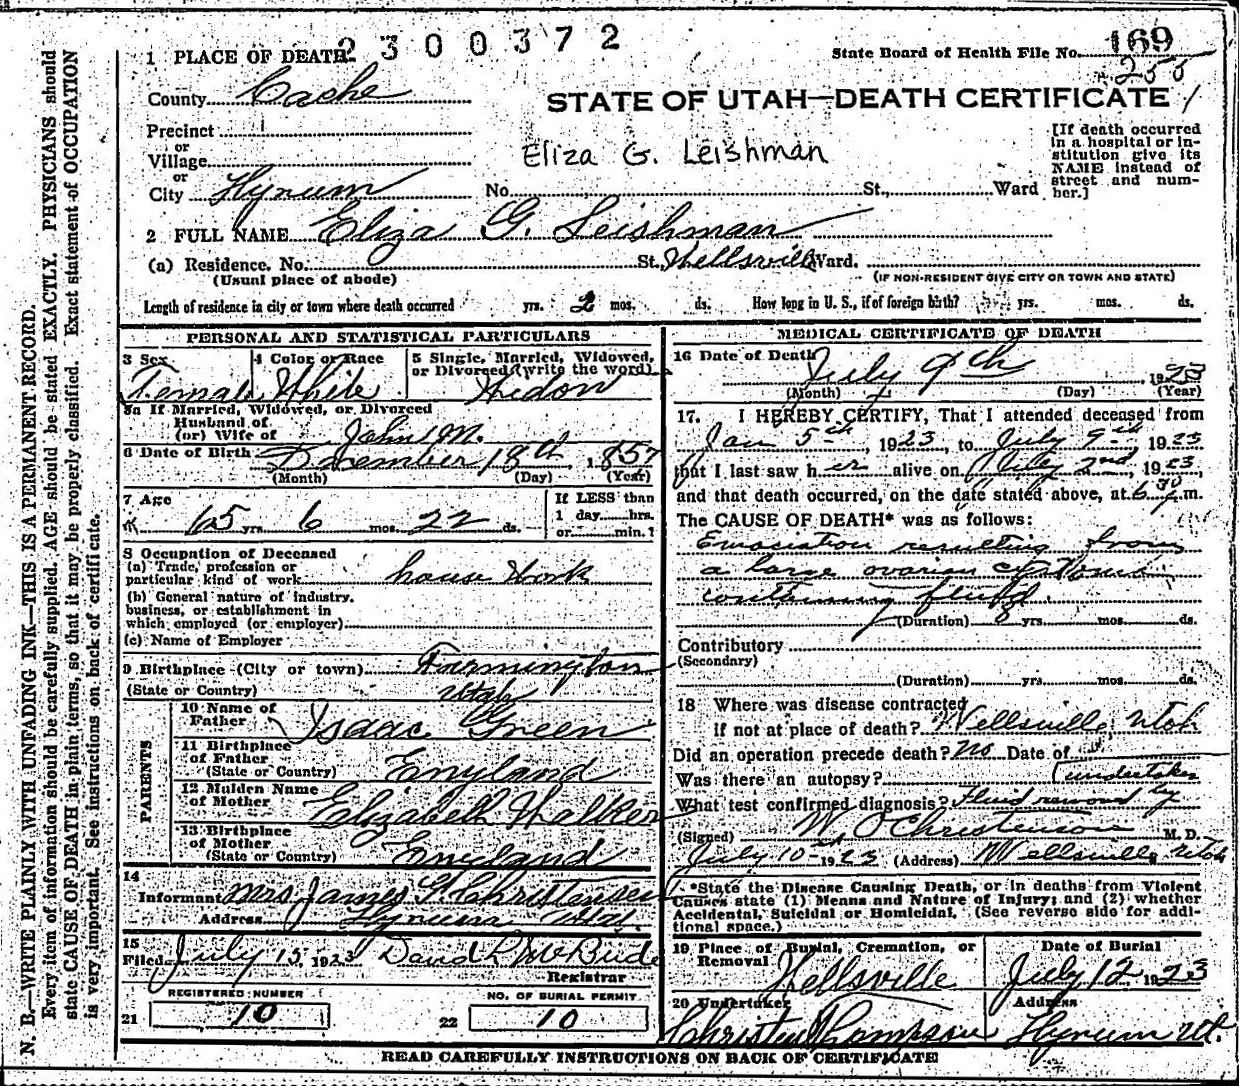 2300372
1 PLACE OF DEATH
State Board of Health File No. 169
255
County Cache
STATE OF UTAH—DEATH CERTIFICATE
Precinct
or
Village
or
City Hyrum
Eliza G. Leishman
[If death occurred
in a hospital or in-
stitution give its
NAME instead of
street and num-
ber.]
No. St., Ward
2 FULL NAME Eliza G. Leishman
(a) Residence. No. St. Wellsville Ward.
(Usual place of abode)
(IF NON-RESIDENT GIVE CITY OR TOWN AND STATE)
Length of residence in city or town where death occurred yrs. 2 mos. ds. How long in U. S., if of foreign birth? yrs. mos. ds.
N. B.—WRITE PLAINLY WITH UNFADING INK—THIS IS A PERMANENT RECORD.
Every item of information should be carefully supplied. AGE should be stated EXACTLY. PHYSICIANS should
state CAUSE OF DEATH in plain terms, so that it may be properly classified. Exact statement of OCCUPATION
is very important. See instructions on back of certificate.
PERSONAL AND STATISTICAL PARTICULARS
3 Sex
Female
4 Color or Race
White
5 Single, Married, Widowed,
or Divorced (write the word)
Widow
5a If Married, Widowed, or Divorced
Husband of
(or) Wife of John M.
6 Date of Birth December 18th, 1857
(Month) (Day) (Year)
7 Age
65 yrs. 6 mos. 22 ds.
If LESS than
1 day hrs.
or min.?
8 Occupation of Deceased
(a) Trade, profession or
particular kind of work house Work
(b) General nature of industry,
business, or establishment in
which employed (or employer)
(c) Name of Employer
9 Birthplace (City or town) Farmington
(State or Country) Utah
PARENTS
10 Name of
Father Isaac Green
11 Birthplace
of Father
(State or Country) England
12 Maiden Name
of Mother Elizabeth Walker
13 Birthplace
of Mother
(State or Country) England
14
Informant Mrs James G. Christensen
Address Hyrum Utah.
15
Filed July 15, 1923 David R McBride
Registrar
REGISTERED NUMBER
21 10
NO. OF BURIAL PERMIT
22 10
MEDICAL CERTIFICATE OF DEATH
16 Date of Death July 9th, 1923
(Month) (Day) (Year)
17. I HEREBY CERTIFY, That I attended deceased from
Jan 5th, 1923, to July 9th 1923
that I last saw her alive on July 2nd, 1923,
and that death occurred, on the date stated above, at 6 m.
The CAUSE OF DEATH* was as follows:
Emaciation resulting from
a large ovarian
containing fluid.
(Duration) 8 yrs. mos. ds.
Contributory
(Secondary)
(Duration) yrs. mos. ds.
18 Where was disease contracted
if not at place of death? Wellsville, Utah
Did an operation precede death? no Date of
Was there an autopsy? (undertaker
What test confirmed diagnosis? Fluid removed by
(Signed) W. O Christenson M. D.
July 10 1923 (Address) Wellsville, Utah
*State the Disease Causing Death, or in deaths from Violent
Causes state (1) Means and Nature of Injury; and (2) whether
Accidental, Suicidal or Homicidal. (See reverse side for addi-
tional space.)
19 Place of Burial, Cremation, or
Removal
Wellsville
Date of Burial
July 12 1923
20 Undertaker
Christen Thompson
Address
Hyrum Ut.
READ CAREFULLY INSTRUCTIONS ON BACK OF CERTIFICATE